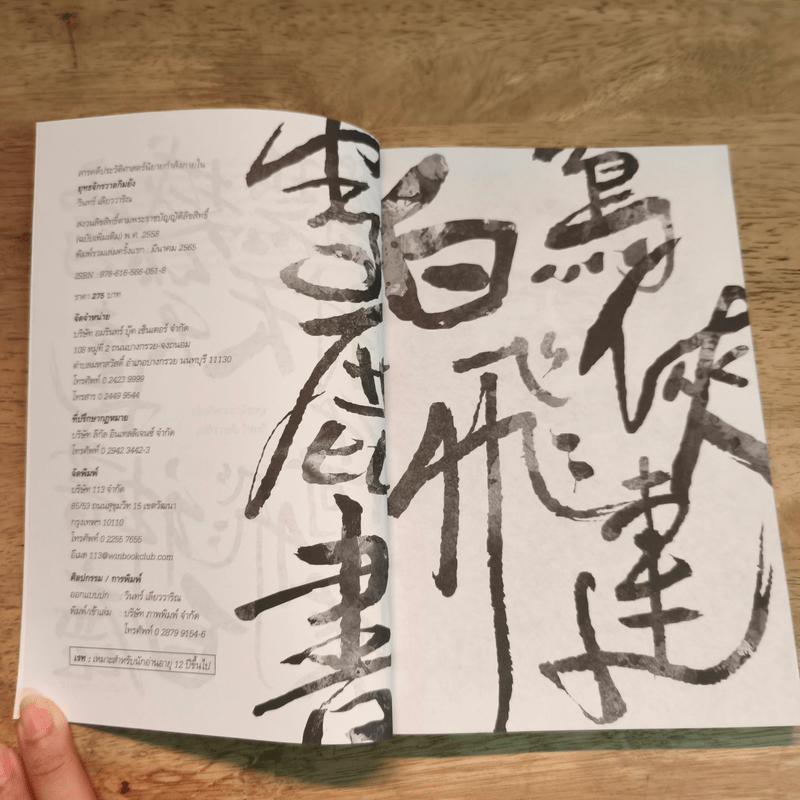 สารคดีประวัติศาสตร์นิยายกำลังภายใน
ยุทธจักรวาลกิมย้ง
วินทร์ เลียววาริณ
สงวนลิขสิทธิ์ตามพระราชบัญญัติลิขสิทธิ์
(ฉบับเพิ่มเติม) พ.ศ. 2558
พิมพ์รวมเล่มครั้งแรก : มีนาคม 2565
ISBN : 978-616-566-051-8
ราคา 275 บาท
จัดจำหน่าย
บริษัท อมรินทร์ บุ๊ค เซ็นเตอร์ จำกัด
108 หมู่ที่ 2 ถนนบางกรวย-จงถนอม
ตำบลมหาสวัสดิ์ อำเภอบางกรวย นนทบุรี 11130
โทรศัพท์ 0 2423 9999
โทรสาร 0 2449 9544
ที่ปรึกษากฎหมาย
บริษัท ลีกัล อินเทลลิเจนซ์ จำกัด
โทรศัพท์ 0 2942 3442-3
จัดพิมพ์
บริษัท 113 จำกัด
85/53 ถนนสุขุมวิท 15 เขตวัฒนา
กรุงเทพฯ 10110
โทรศัพท์ 0 2255 7655
อีเมล 113@winbookclub.com
ศิลปกรรม / การพิมพ์
ออกแบบปก : วินทร์ เลียววาริณ
พิมพ์/เข้าเล่ม : บริษัท ภาพพิมพ์ จำกัด
โทรศัพท์ 0 2879 9154-6
เรท : เหมาะสำหรับนักอ่านอายุ 12 ปีขึ้นไป
俠連
白飛
書